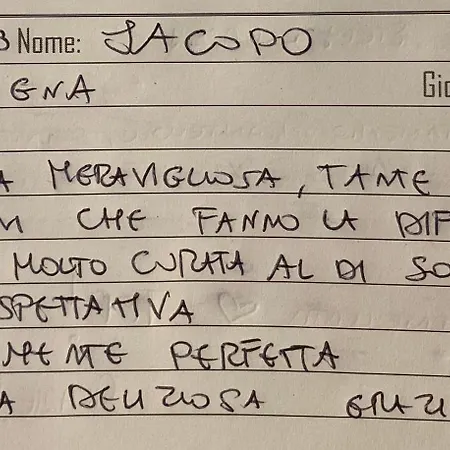 3 Nome: JACOPO
EGNA Gio
A MERAVIGLIOSA, TANTE
CHE FANNO LA DIF
MOLTO CURATA AL DI SO
SPETTATIVA
MENTE PERFETTA
A DELIZIOSA GRAZI